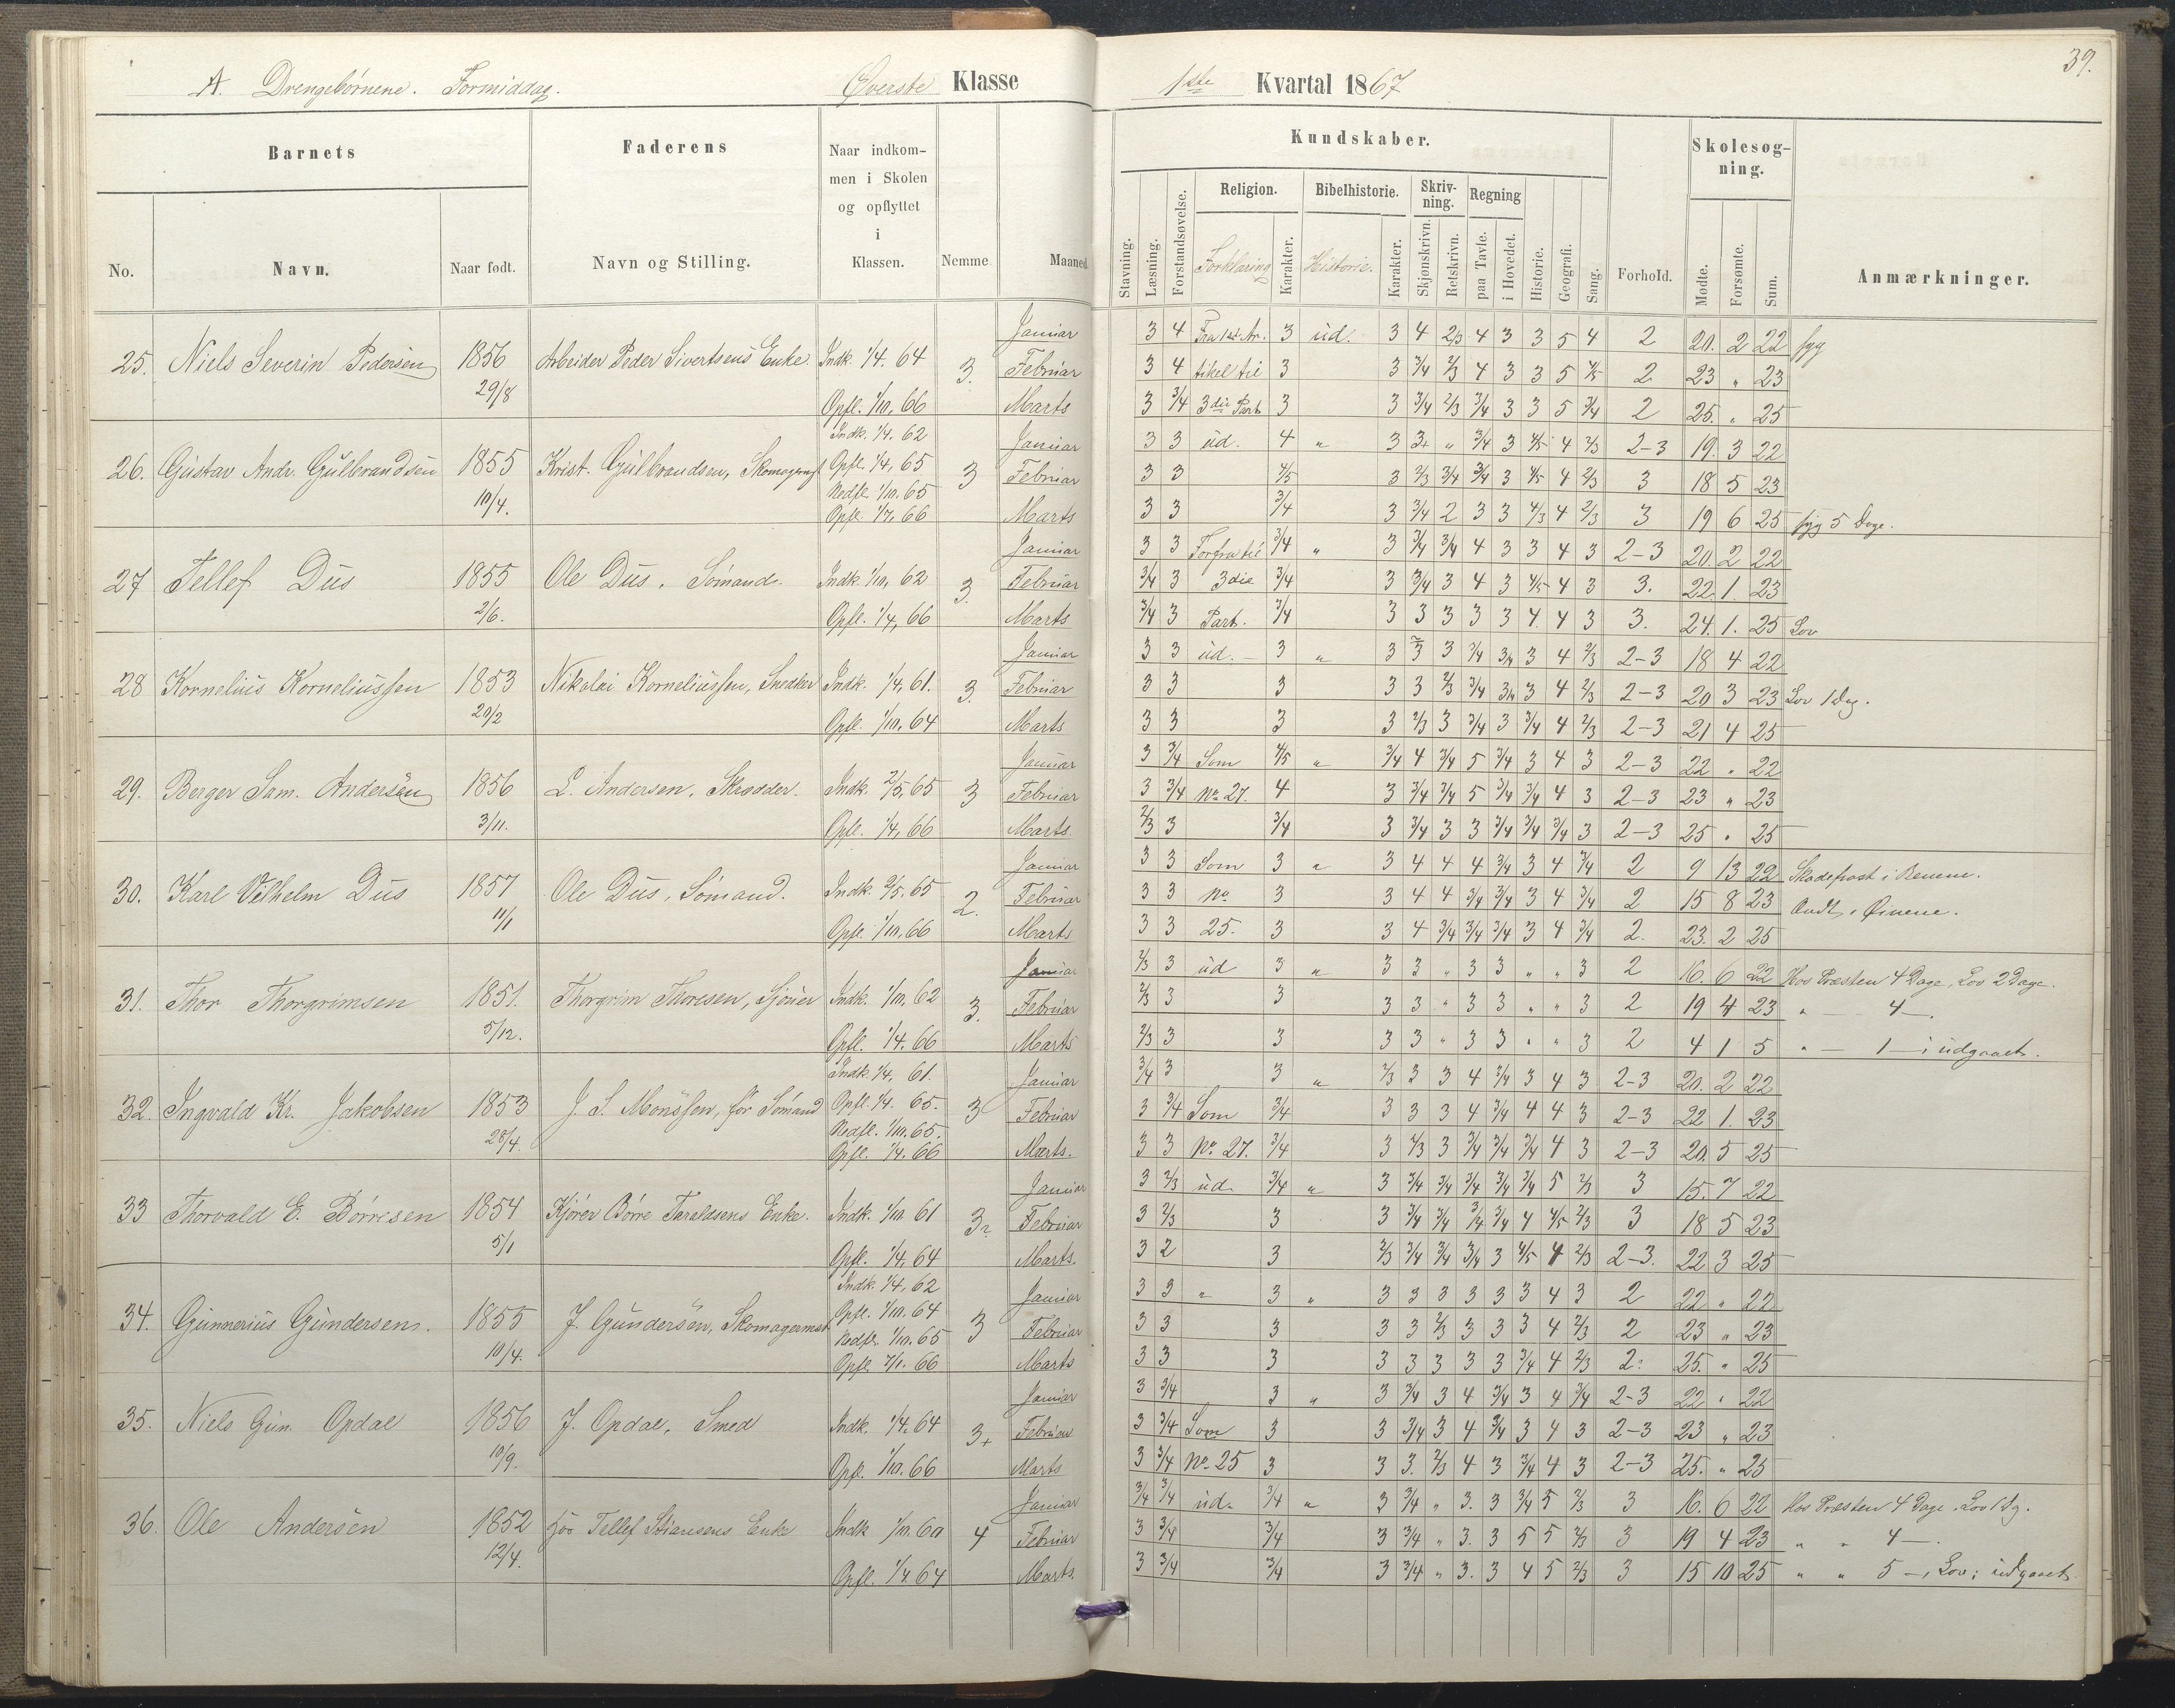 A. Drengebørnene. Formiddag. Øverste Klasse
1ste Kvartal 1867
39.
Barnets
Faderens
Naar indkom-
men i Skolen
og opflyttet
i
Klassen.
No.
Navn.
Naar født.
Navn og Stilling.
Nemme
Maaned
Kundskaber.
Skolesøg-
ning.
Religion.
Bibelhistorie.
Skriv-
ning.
Regning
Stavning.
Læsning.
Forstandsøvelse.
Forklaring
Karakter.
Historie.
Karakter.
Skjønskrivn.
Retskrivn.
paa Tavle.
i Hovedet.
Historie.
Geografi.
Sang.
Forhold.
Mødte.
Forsømte.
Sum.
Anmærkninger.
25. Niels Severin Pedersen 1856 29/8 Arbeider Peder Sivertsens Enke. Indk. 1/4. 64 Opfl. 1/10. 66 3.
Januar 3 4 Fra 1ste Ar- 3 ud. 3 4 2/3 4 3 3 5 4 2 20. 2 22 syg
Februar 3 4 tikel til 3 3 3/4 2/3 4 3 3 5 4/5 2 23 " 23
Marts 3 3/4 3die Part 3 3 3/4 2/3 3/4 3 3 5 3/4 2 25. " 25
26. Gustav Andr. Gulbrandsen 1855 10/4. Krist. Gulbrandsen, Skomagermst Indk. 1/4. 62 Opfl. 1/4, 65 Nedfl. 1/10. 65 Opfl. 1/7. 66 3
Januar 3 3 ud. 4 " 3 3+ " 3/4 3 4/5 4 2/3 2-3 19. 3 22
Februar 3 3 4/5 3 2/3 3/4 3/4 3 4/5 4 2/3 3 18 5 23
Marts 3 3 3/4 3 3/4 2 3 3 4/3 4 2/3 3 19 6 25 syg 5 Dage.
27 Tellef Dus 1855 2/6. Ole Dus, Sømand. Indk. 1/10, 62 Opfl. 1/4, 66 3.
Januar 3 3 Forfra til 3/4 " 3 3/4 3/4 4 3 3 4 3 2-3 20. 2 22
Februar 3/4 3 3die 3/4 3 3/4 3 4 3 4/5 4 3 3. 22. 1. 23
Marts 3/4 3 Part. 3/4 3 3 3 3 3 4. 4 3 3. 24. 1. 25 Lov
28 Kornelius Korneliussen 1853 20/2 Nikolai Korneliussen, Snedker Indk. 1/4, 61. Opfl. 1/10, 64 3.
Januar 3 3 ud. 3 " 3 3 3 3/4 3/4 3 4 2/3 2-3 18 4 22
Februar 3 3 3 3 3 2/3 3/4 3/4 3 4 2/3 2-3 20 3 23 Lov 1 Dag.
Marts 3 3 3 3 2/3 3 3/4 3 3/4 4 2/3 2-3 21 4 25
29. Berger Sam. Andersen 1856 3/11. L. Andersen, Skrædder. Indk. 2/5, 65 Opfl. 1/4, 66 3
Januar 3 3/4 Som 4/5 " 3/4 4 3/4 5 3/4 3 4 3 2-3 22 " 22
Februar 3 3/4 No 27. 4 3 3/4 3/4 5 3/4 3/4 4 3 2-3 23 " 23
Marts 2/3 3 3/4 3 3/4 3 3 3/4 3/4 3/4 3 2-3 25 " 25
30. Karl Vilhelm Dus 1857 11/1 Ole Dus, Sømand. Indk. 2/5. 65 Opfl. 1/10, 66 2.
Januar 3 3 Som 3 " 3 4 4 4 3/4 3 4 3/4 2 9 13 22 Skadefrost i Benene.
Februar 3 3 No 3 3 4 4 3/4 3/4 3 4 3/4 2 15 8 23 Ondt i Øinene.
Marts 3 3 25. 3 3 4 3/4 3/4 3/4 3 4 3/4 2. 23. 2 25
31. Thor Thorgrimsen 1851. 5/12. Thorgrim Thoresen, Sjouer Indk. 1/10. 62 Opfl. 1/4. 66 3.
Januar 2/3 3 ud 3 " 3 3 " 3 3 " " 3 2 16. 6 22 Hos Præsten 4 Dage, Lov 2 Dage.
Februar 2/3 3 3 3 3 " 3 3 " " 3 2 19 4 23 " — 4 —.
Marts 2/3 3 3 3 3 " 3 3 " " 3 2 4 1 5 " — 1 — ; udgaaet.
32. Ingvald Kr. Jakobsen 1853 28/4. J. S. Monssen, før Sømand Indk. 1/4, 61. Opfl. 1/4. 65. Nedfl. 1/10. 65. Opfl. 1/4. 66 3
Januar 3/4 3 3 " 2/3 3 3 4 3/4 3 4 3 2-3 20. 2 22
Februar 3 3/4 Som 3/4 3 3 3 4 3/4 4 4 3 2-3 22 1. 23
Marts. 3 3 No 27. 3/4 3 2/3 3 3/4 3/4 3/4 4 3 2-3 20. 5 25
33 Thorvald E. Børresen 1854 5/1 Kjører Børre Taraldsens Enke. Indk. 1/10 61 Opfl. 1/4, 64 3
Januar 3 2/3 ud. 3/4 " 3 3/4 3/4 3/4 3/4 3/4 5 2/3 3 15. 7 22
Februar 3 2/3 3 3 3/4 3/4 3/4 3/4 4 4/5 2/3 3 18 5 23
Marts. 3 2 3 2/3 3/4 3/4 3/4 3 4/5 4 2/3 2-3. 22 3 25
34. Gunnerius Gundersen. 1855 10/4. J. Gundersen, Skomagermst Indk. 1/4, 62 Opfl. 1/10. 64 Nedfl. 1/10. 65 Opfl. 7/1. 66 3
Januar 3 3 " 3 " 3 3 3 3 3 3 4 3 2 22 " 22
Februar 3 3 3 3 3 2/3 3 3 3 4 2/3 2 23 " 23
Marts 3 3 3 3 3 3 3 3 3/4 4 2/3 2. 25. " 25
35. Niels Gun. Opdal 1856 10/9. J. Opdal, Smed Indk. 1/4. 64 Opfl. 1/10. 66 3+
Januar 3 3/4 3 " 3 3/4 3 4 3/4 3 4 3/4 2-3 22 " 22
Februar 3 3/4 Som 3 3 3/4 3 4 3/4 3 4 3 2-3 23 " 23
Marts 3 3/4 No 25 3 3 3. 2/3 4 3 3/4 4 3 2-3 25. " 25
36. Ole Andersen 1852 12/4. hos Tellef Stiansens Enke Indk 1/10. 60 Opfl. 1/4 64 4
Januar 3/4 3/4 ud. 3/4 " 3 3/4 " 3. 3 3/4 5 2/3 3 16. 6 22 Hos Præsten 4 Dage. Lov 1 Dg.
Februar 3 3/4 3/4 3 3/4 " 3. 3 5 5 2/3 3 19 4 23 " " 4 —.
Marts. 3 3/4 3/4 3 3/4 " 3. 3 4 5 2/3 3 15 10 25 " " 5 —, Lov; udgaaet.